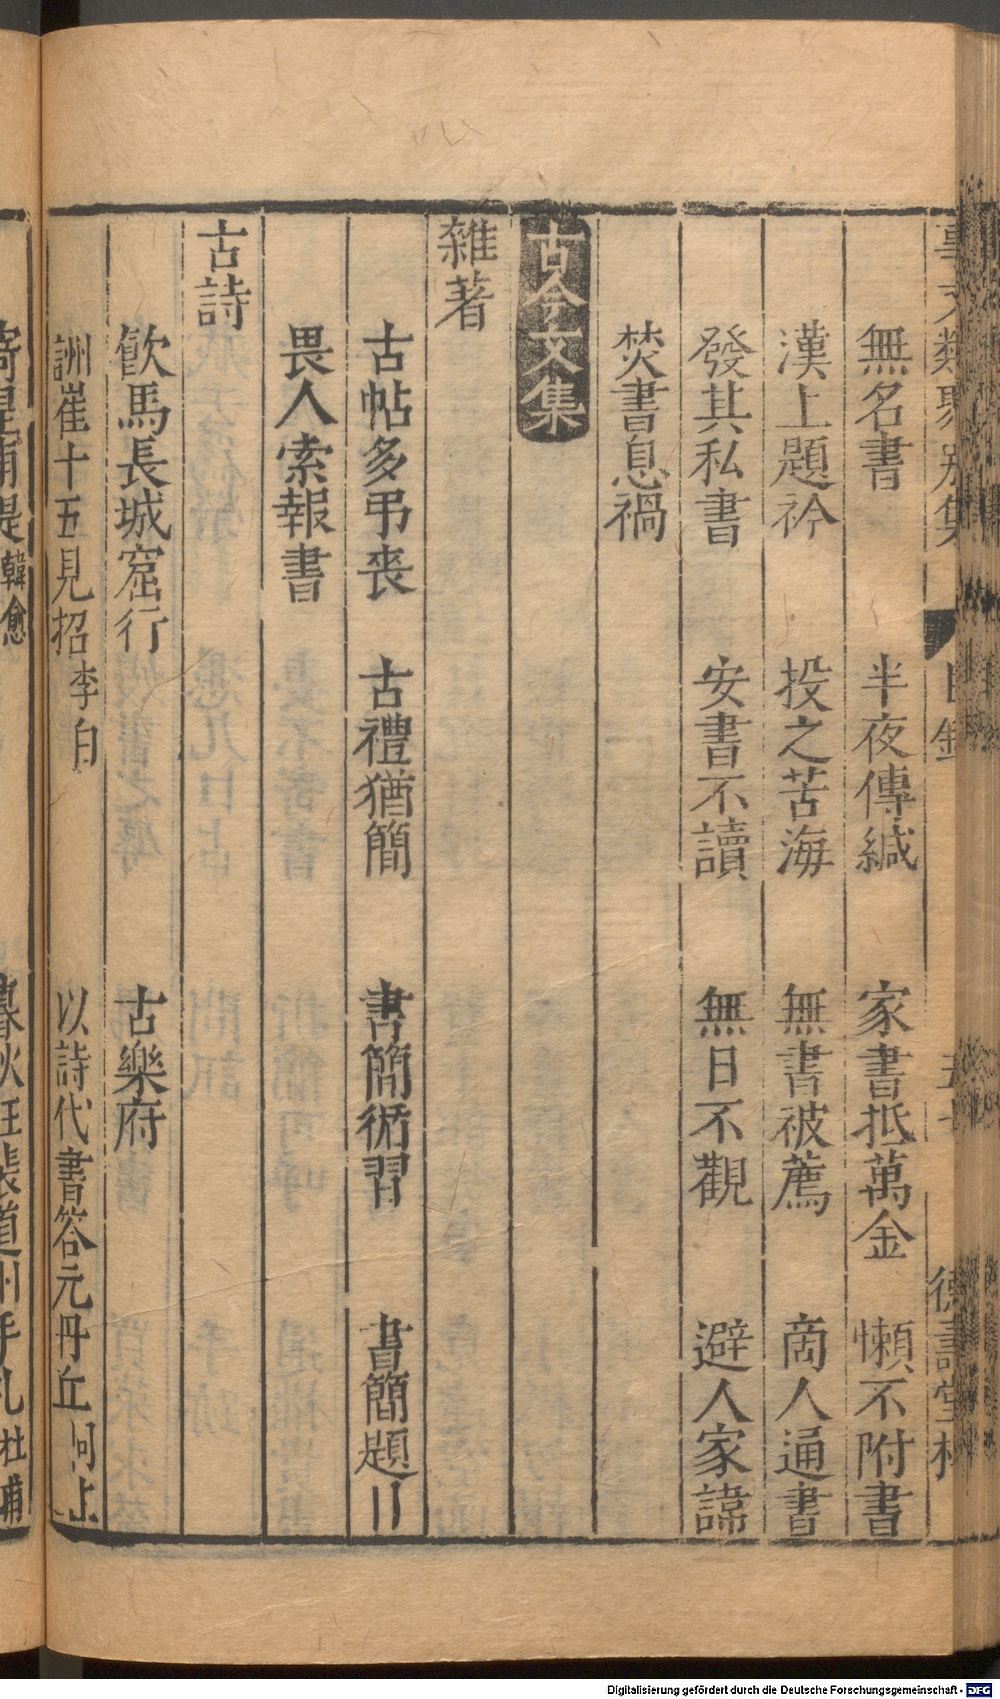 事文類聚別集 目錄 德壽堂梓
無名書 半夜傳緘 家書抵萬金 懶不附書
漢上題衿 投之苦海 無書被薦 商人通書
發其私書 安書不讀 無日不觀 避人家諱
焚書息禍
古今文集
雜著
古帖多弔喪 古禮猶簡 書簡循習 書簡題〢
畏人索報書
古詩
飲馬長城窟行 古樂府
詶崔十五見招 李白 以詩代書答元丹丘 同上
寄皇甫湜 韓愈 暮秋枉裴道州手札 杜甫
Digitalisierung gefördert durch die Deutsche Forschungsgemeinschaft - DFG